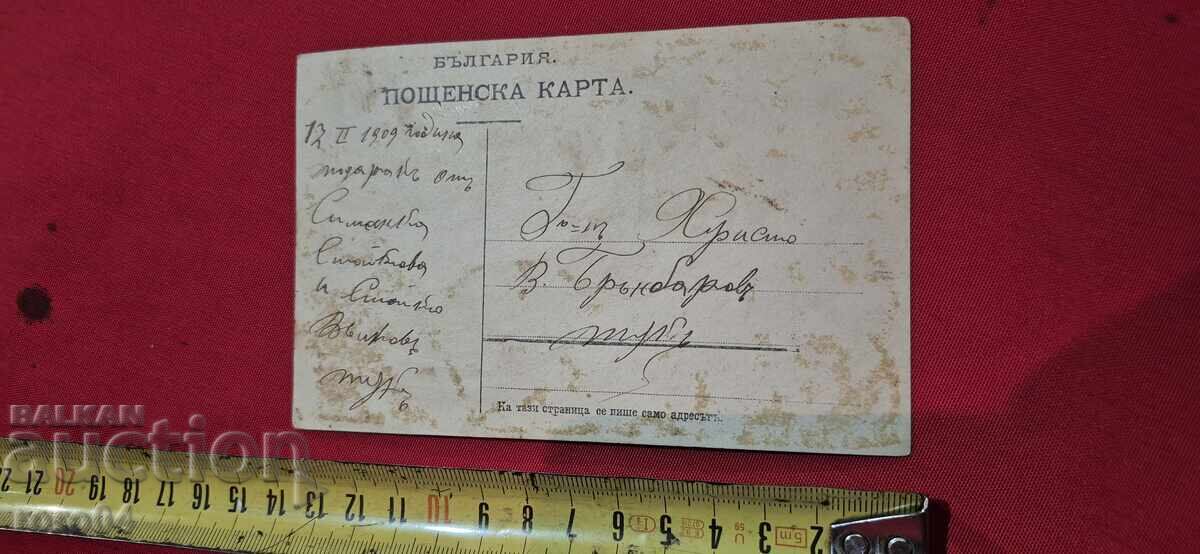 БЪЛГАРИЯ.
ПОЩЕНСКА КАРТА.
12 II 1909 година
подаръкъ отъ
Симанка
Стойкова
и Стойко
Вълковъ
тукъ
Г-нъ Христо
В. Брънбаровъ
тукъ
На тази страница се пише само адресътъ.
BALKAN
auction
roco04
21 20 19 18 17 16 15 14 13 12 11 10 9 8 7 6 5 4 3 2
5m